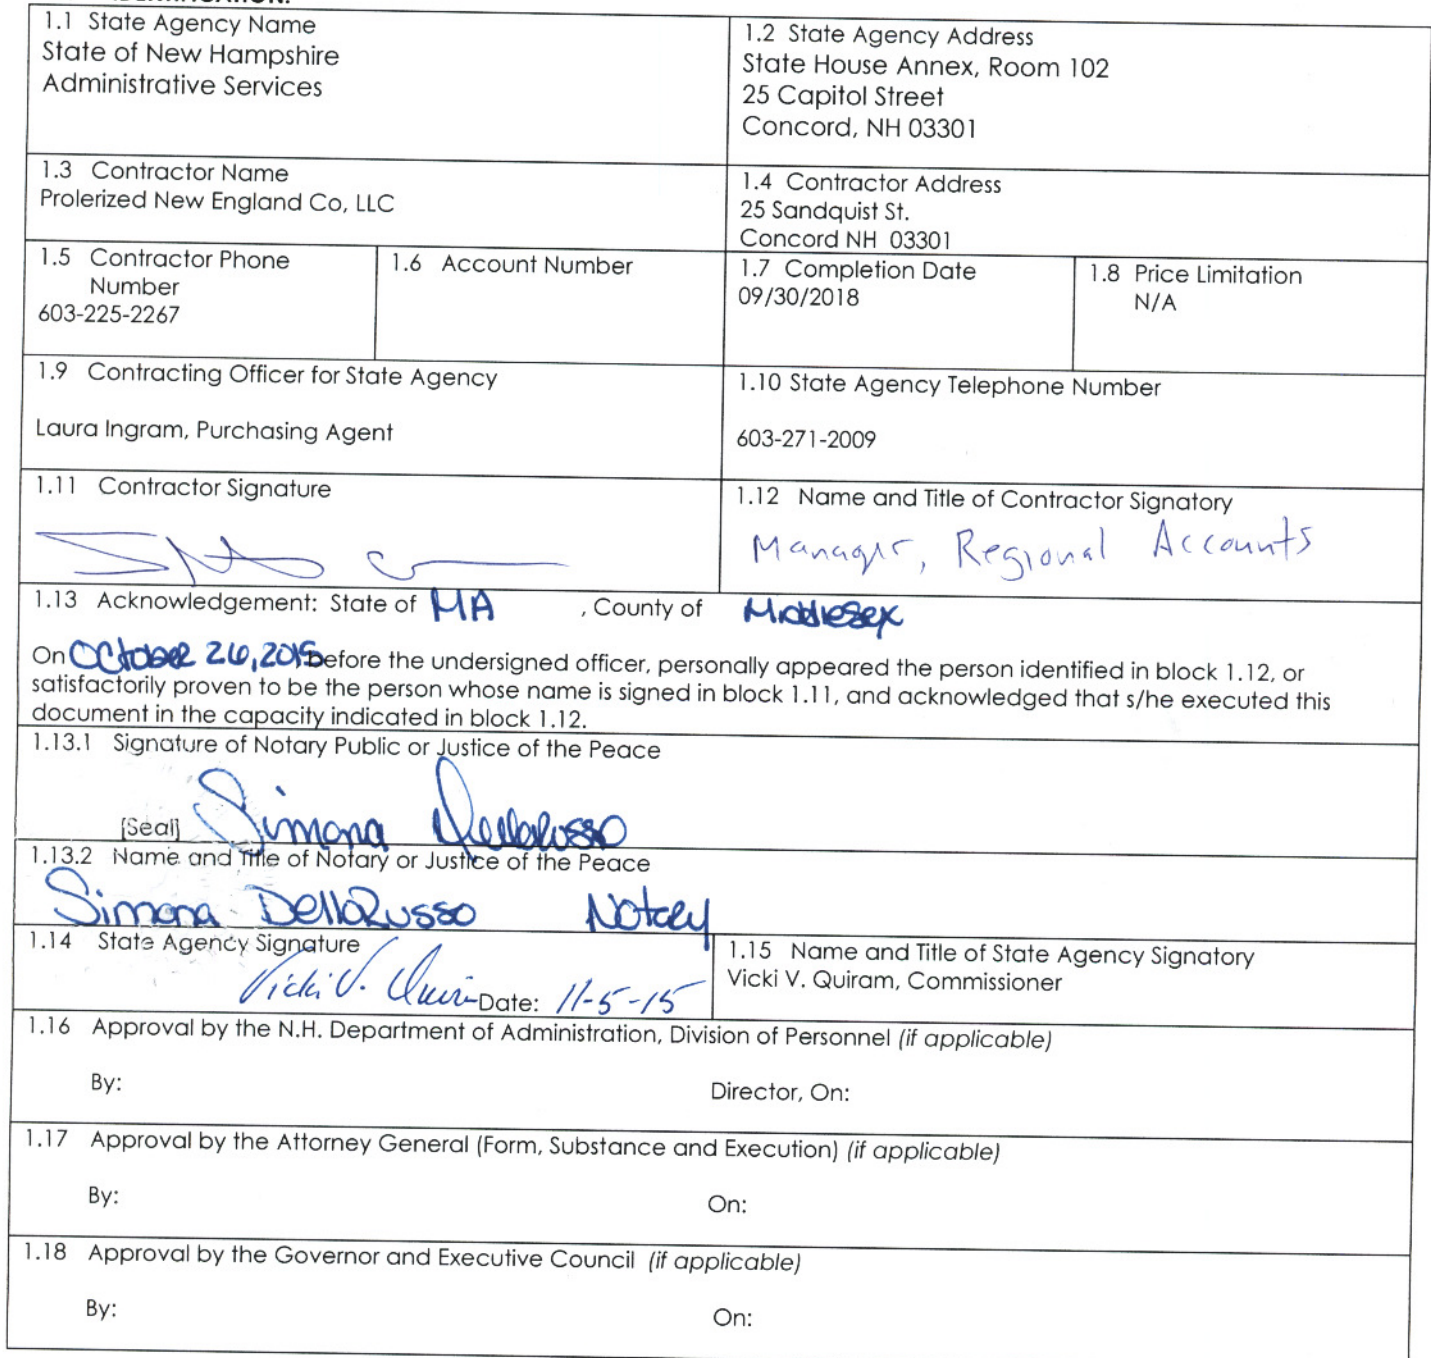 1.1 State Agency Name
State of New Hampshire
Administrative Services
1.2 State Agency Address
State House Annex, Room 102
25 Capitol Street
Concord, NH 03301
1.3 Contractor Name
Prolerized New England Co, LLC
1.4 Contractor Address
25 Sandquist St.
Concord NH 03301
1.5 Contractor Phone
Number
603-225-2267
1.6 Account Number
1.7 Completion Date
09/30/2018
1.8 Price Limitation
N/A
1.9 Contracting Officer for State Agency
Laura Ingram, Purchasing Agent
1.10 State Agency Telephone Number
603-271-2009
1.11 Contractor Signature
1.12 Name and Title of Contractor Signatory
Manager, Regional Accounts
1.13 Acknowledgement: State of MA , County of Middlesex
On October 26, 2015 before the undersigned officer, personally appeared the person identified in block 1.12, or
satisfactorily proven to be the person whose name is signed in block 1.11, and acknowledged that s/he executed this
document in the capacity indicated in block 1.12.
1.13.1 Signature of Notary Public or Justice of the Peace
[Seal] Simona DellaRusso
1.13.2 Name and Title of Notary or Justice of the Peace
Simona DellaRusso Notary
1.14 State Agency Signature
Vicki V. Quiram Date: 11-5-15
1.15 Name and Title of State Agency Signatory
Vicki V. Quiram, Commissioner
1.16 Approval by the N.H. Department of Administration, Division of Personnel (if applicable)
By: Director, On:
1.17 Approval by the Attorney General (Form, Substance and Execution) (if applicable)
By: On:
1.18 Approval by the Governor and Executive Council (if applicable)
By: On: